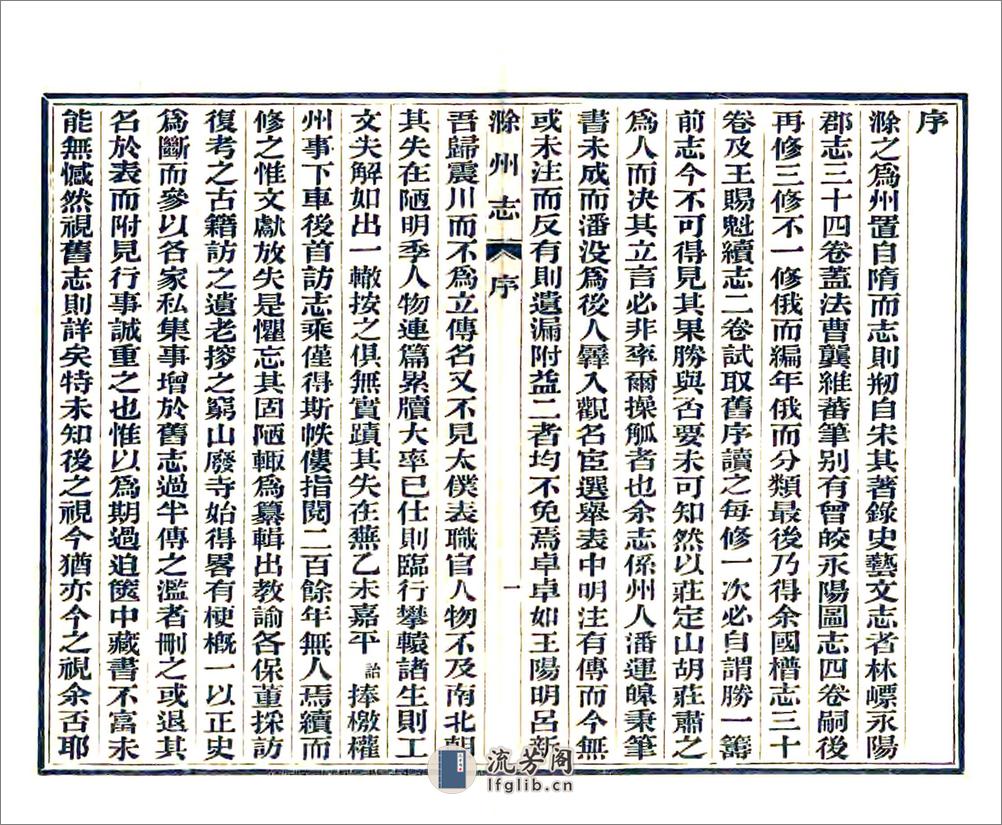 序
滁之爲州置自隋而志則刱自宋其著錄史藝文志者林㟽永陽
郡志三十四卷蓋法曹龔維蕃筆别有曾皎永陽圖志四卷嗣後
再修三修不一修俄而編年俄而分類最後乃得余國㯭志三十
卷及王賜魁續志二卷試取舊序讀之每修一次必自謂勝一籌
前志今不可得見其果勝與否要未可知然以莊定山胡莊肅之
爲人而决其立言必非率爾操觚者也余志係州人潘運皥秉筆
書未成而潘没爲後人羼入觀名宦選舉表中明注有傳而今無
或未注而反有則遺漏附益二者均不免焉卓卓如王陽明呂新
滁州志 序 一
吾歸震川而不爲立傳名又不見太僕表職官人物不及南北朝
其失在陋明季人物連篇累牘大率已仕則臨行攀轅諸生則工
文失解如出一轍按之俱無實蹟其失在蕪乙未嘉平詒捧檄權
州事下車後首訪志乘僅得斯帙僂指閱二百餘年無人焉續而
修之惟文獻放失是懼忘其固陋輙爲纂輯出敎諭各保董採訪
復考之古籍訪之遺老摉之窮山廢寺始得畧有梗槪一以正史
爲斷而參以各家私集事增於舊志過半傳之濫者刪之或退其
名於表而附見行事誠重之也惟以爲期過迫篋中藏書不富未
能無憾然視舊志則詳矣特未知後之視今猶亦今之視余否耶
流芳阁
lfglib.cn